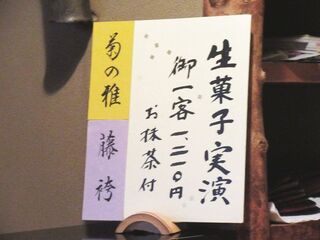 生菓子実演
御一客一、二一〇円
お抹茶付
菊の雅
藤袴